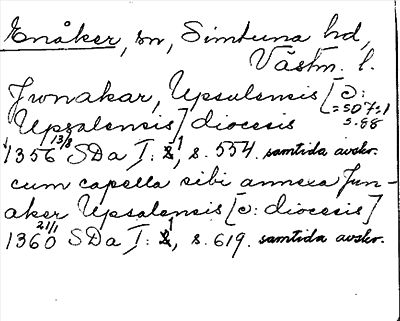 Enåker, sn, Simtuna hd,
Västm. l.
Jwnakar, Upsulensis [ɔ:
= SD 7:1
s. 58
Upsalensis] diocesis
1356 13/3 SDa I: 1, s. 554. samtida avskr.
cum capella sibi annexa Jun-
aker Upsalensis [ɔ: diocesis]
1360 21/1 SDa I: 1, s. 619. samtida avskr.